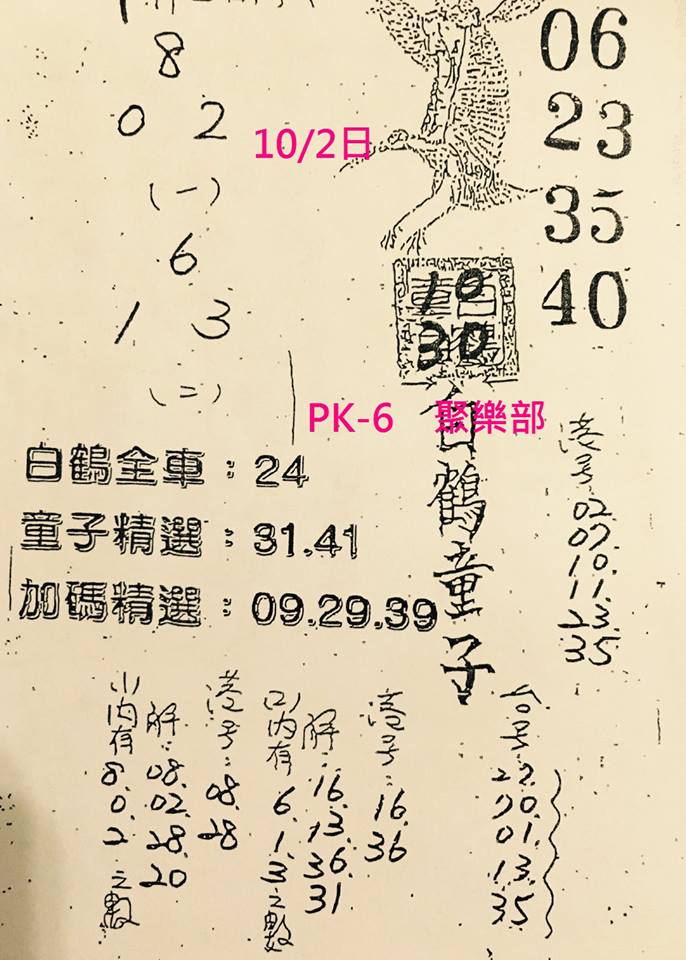 8
0 2
(一)
6
1 3
(二)
10/2日
06
23
35
40
10
30
PK-6 聚樂部
白鶴童子
白鶴全車：24
童子精選：31.41
加碼精選：09.29.39
港号：
02.
07.
10.
11.
23.
35
(1)內有8.0.2之數
解：08.02.28.20
港号：08.28
(2)內有6.1.3之數
解：16.13.36.31
港号：16.36
台号：